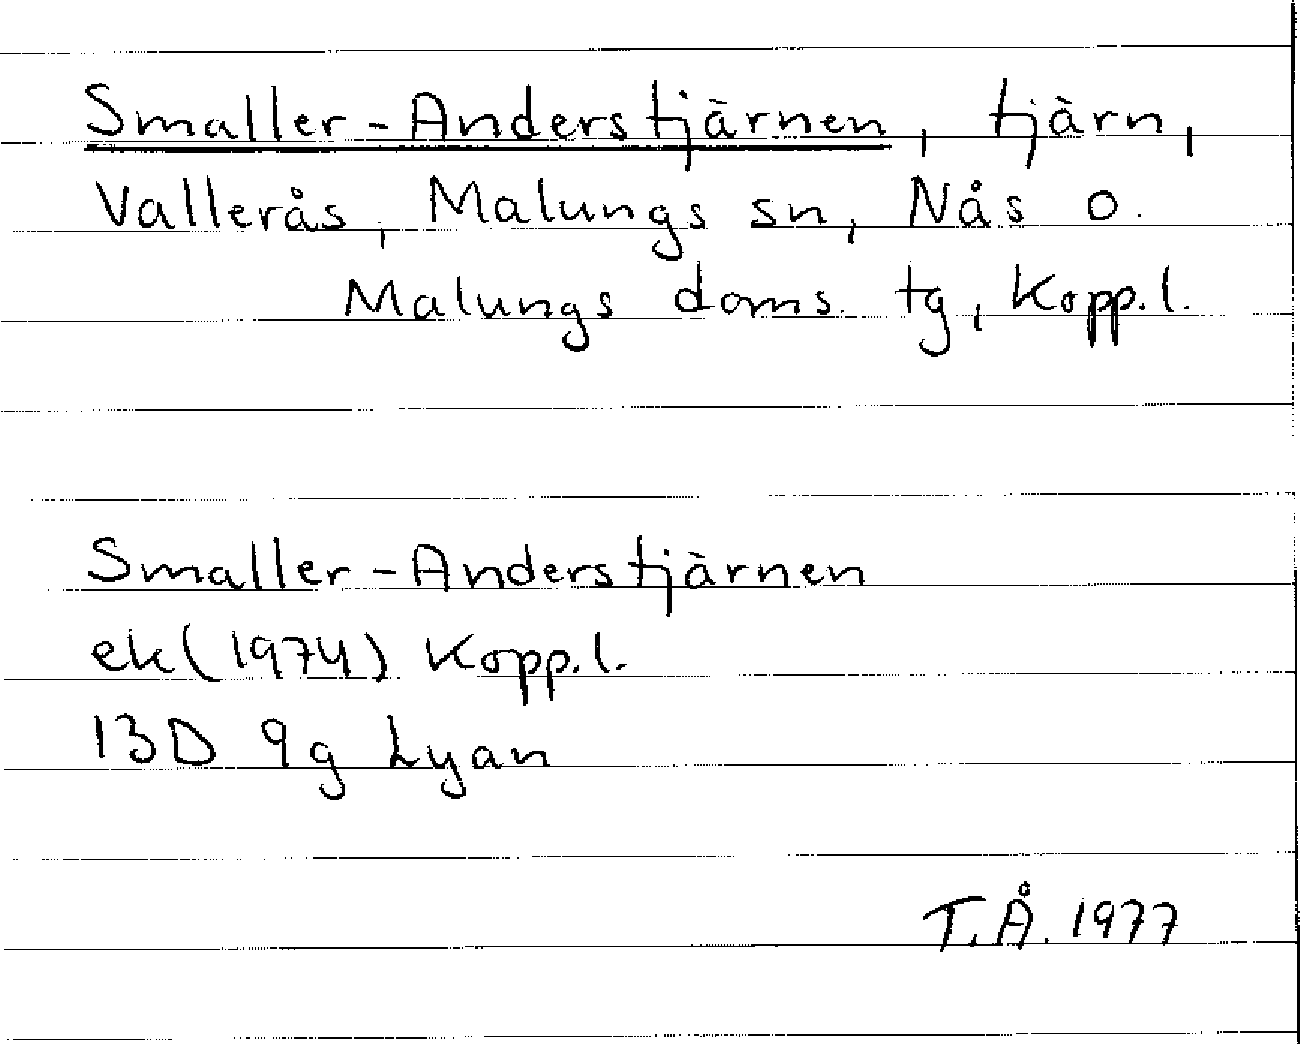 Smaller-Anderstjärnen, tjärn,
Vallerås, Malungs sn, Nås o.
Malungs doms. tg, Kopp.l.
Smaller-Anderstjärnen
ek(1974) Kopp.l.
13D 9g Lyan
T.Å. 1977